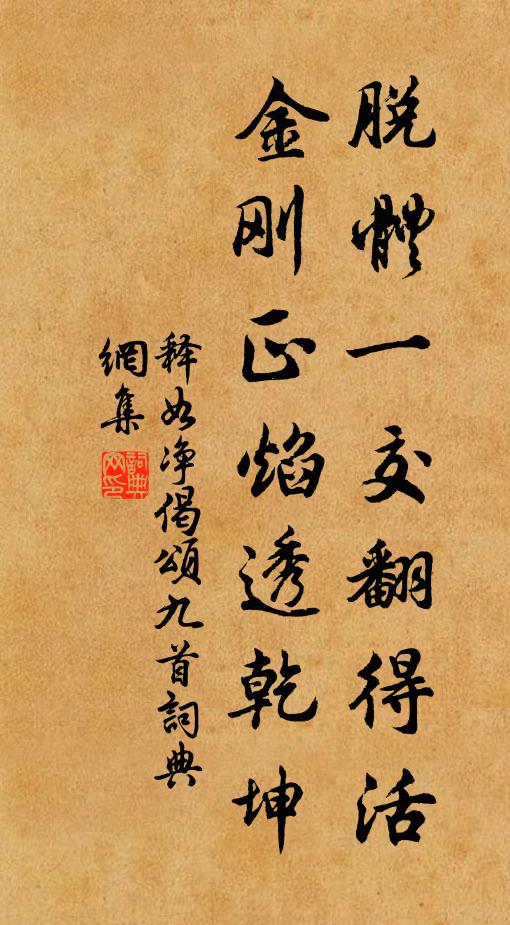 脫體一交翻得活
金刚正焰透乾坤
释如净偈頌九首詞典
網集
詞典網印